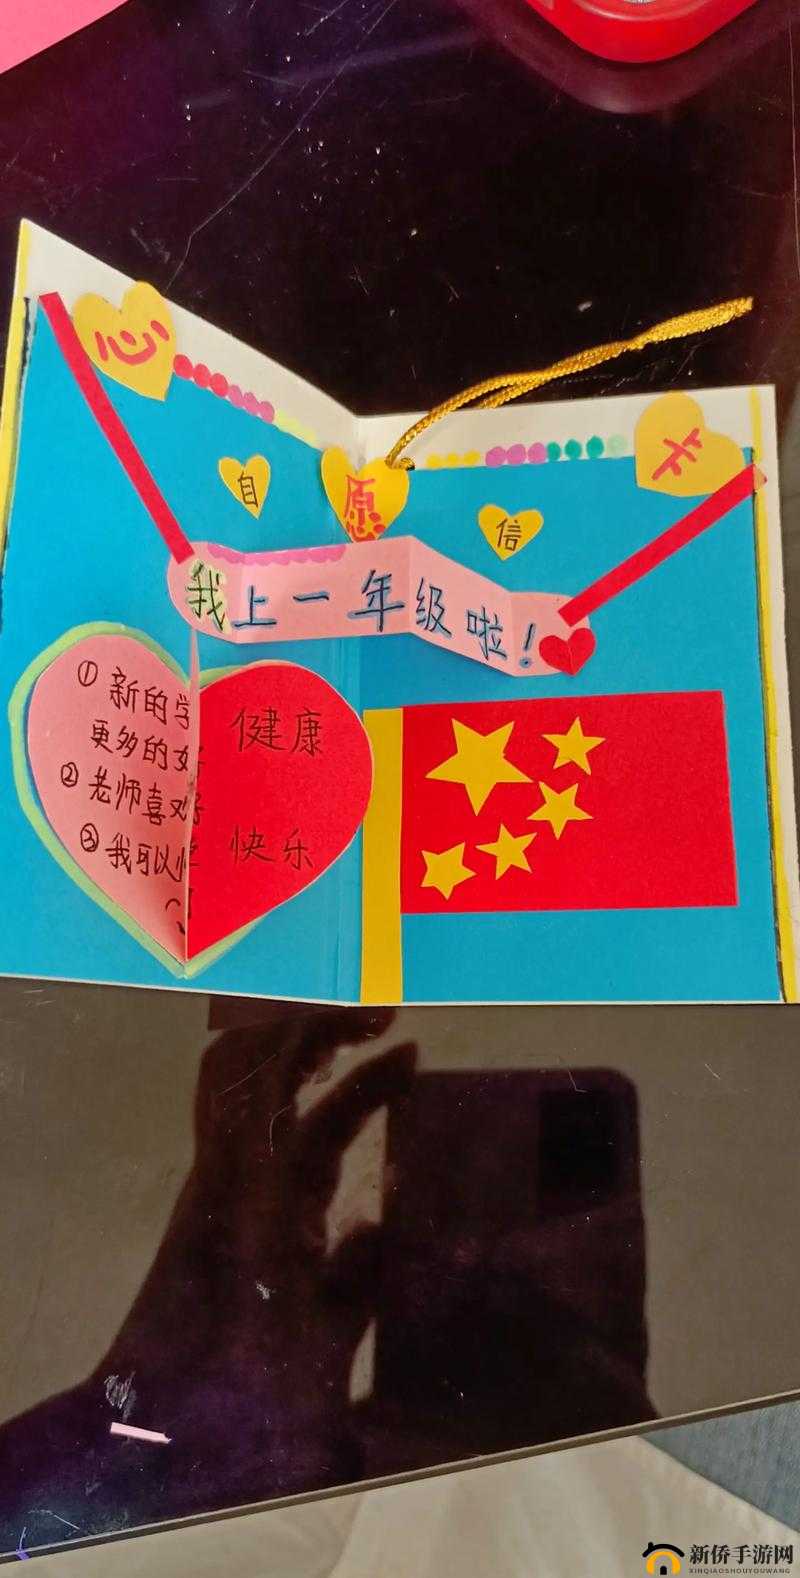 心愿卡
自信
我上一年级啦！
①新的学
更多的好
②老师喜欢
③我可以
健康
快乐
新侨手游网
XINQIAOSHOUYOUWANG